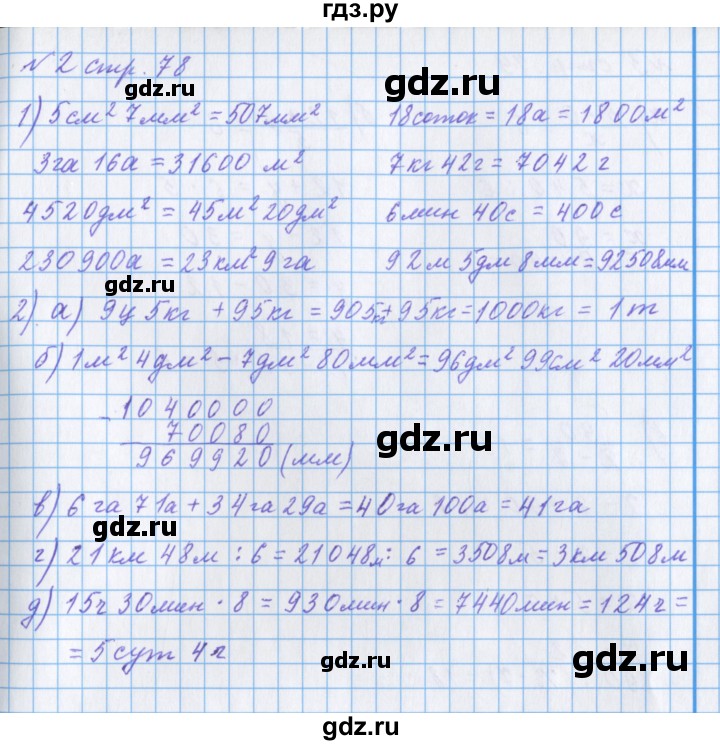 гдз.ру
№2 стр. 78
gdz.ru
gdz.ru
1) 5см² 7мм² = 507мм²
18соток = 18а = 1800м²
3га 16а = 31600 м²
7кг 42г = 7042 г
4520дм² = 45м² 20дм²
6мин 40с = 400с
230900а = 23км² 9га
92м 5дм 8мм = 92508мм
gdz.ru
gdz.ru
2) а) 9ц 5кг + 95кг = 905кг + 95кг = 1000кг = 1т
б) 1м² 4дм² - 7дм² 80мм² = 96дм² 99см² 20мм²
- 1040000
70080
969920 (мм)
gdz.ru
в) 6га 71а + 34га 29а = 40га 100а = 41га
gdz.ru
г) 21км 48м : 6 = 21048м : 6 = 3508м = 3км 508м
д) 15ч 30мин · 8 = 930мин · 8 = 7440мин = 124ч =
= 5сут 4ч
gdz.ru
gdz.ru
gdz.ru